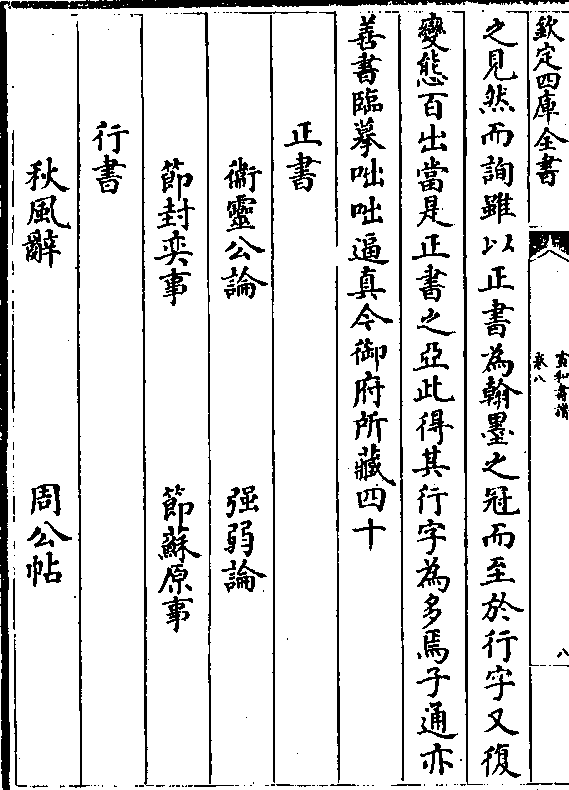 欽定四庫全書
宣和書譜
卷八
八
之見然而詢雖以正書為翰墨之冠而至於行字又復
變態百出當是正書之亞此得其行字為多焉子通亦
善書臨摹咄咄逼真今御府所藏四十
正書
衛靈公論 强弱論
節封奕事 節蘇原事
行書
秋風辭 周公帖